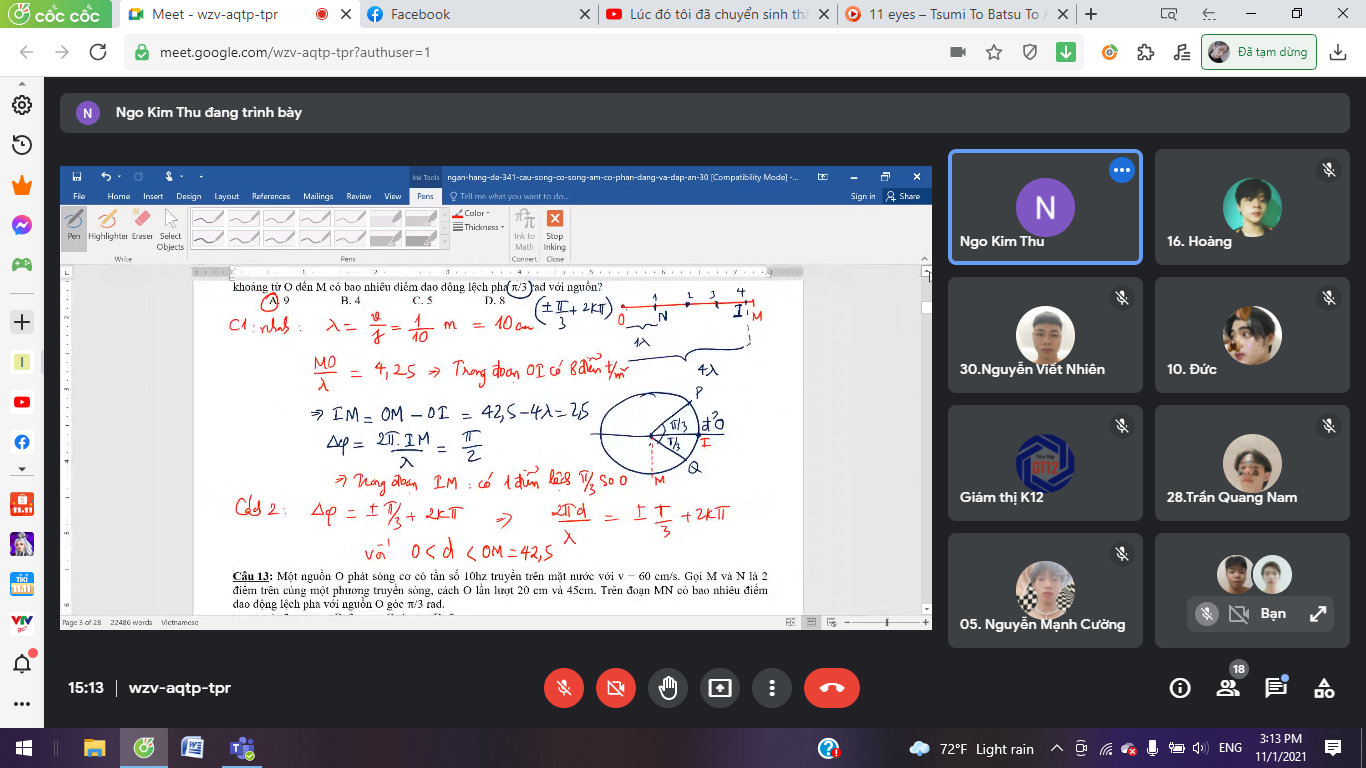 CỐC CỐC
Meet - wzv-aqtp-tpr
Facebook
Lúc đó tôi đã chuyển sinh th
11 eyes – Tsumi To Batsu To A
meet.google.com/wzv-aqtp-tpr?authuser=1
Đã tạm dừng
N
Ngo Kim Thu đang trình bày
Ink Tools
ngan-hang-de-341-cau-song-co-song-am-co-phan-dang-va-dap-an-30 [Compatibility Mode] -...
File Home Insert Design Layout References Mailings Review View Pens Tell me what you want to do...
Sign in Share
Pen Highlighter Eraser Select Objects
Color
Thickness
Ink to Math
Stop Inking
Write Pens Convert Close
khoảng từ O đến M có bao nhiêu điểm dao động lệch pha π/3 rad với nguồn?
A. 9 B. 4 C. 5 D. 8
(±π/3 + 2kπ)
O 1 N 2 3 4 I M
1λ
4λ
λ = v/f = 1/10 m = 10cm
MO/λ = 4,25 ⇒ Trong đoạn OI có 8 điểm t/m
⇒ IM = OM – OI = 42,5 – 4λ = 2,5
Δφ = 2π.IM/λ = π/2
P
π/3
π/3
I
Q
M
⇒ Trong đoạn IM: có 1 điểm lệch π/3 so O
Cách 2: Δφ = ±π/3 + 2kπ ⇒ 2πd/λ = ±π/3 + 2kπ
với 0 < d < OM = 42,5
Câu 13: Một nguồn O phát sóng cơ có tần số 10hz truyền trên mặt nước với v = 60 cm/s. Gọi M và N là 2
điểm trên cùng một phương truyền sóng, cách O lần lượt 20 cm và 45cm. Trên đoạn MN có bao nhiêu điểm
dao động lệch pha với nguồn O góc π/3 rad.
Page 3 of 28 22486 words Vietnamese
N
Ngo Kim Thu
16. Hoàng
30.Nguyễn Viết Nhiên
10. Đức
GT12
Giám thị K12
28.Trần Quang Nam
05. Nguyễn Mạnh Cường
Bạn
I
11.11
TIKI
VTV
go
15:13 | wzv-aqtp-tpr
18
72°F Light rain
ENG
3:13 PM
11/1/2021